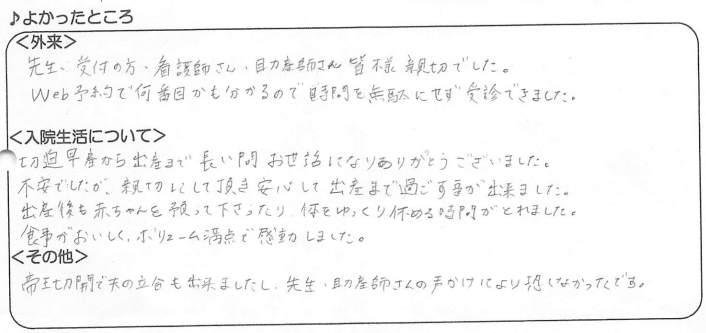 ♪よかったところ
＜外来＞
先生、受付の方、看護師さん、助産師さん皆様親切でした。
Web予約で何番目かも分かるので時間を無駄にせず受診できました。
＜入院生活について＞
切迫早産から出産まで長い間お世話になりありがとうございました。
不安でしたが、親切にして頂き安心して出産まで過ごす事が出来ました。
出産後も赤ちゃんを預って下さったり、体をゆっくり休める時間がとれました。
食事がおいしく、ボリューム満点で感動しました。
＜その他＞
帝王切開で夫の立合も出来ましたし、先生、助産師さんの声かけにより恐くなかったです。